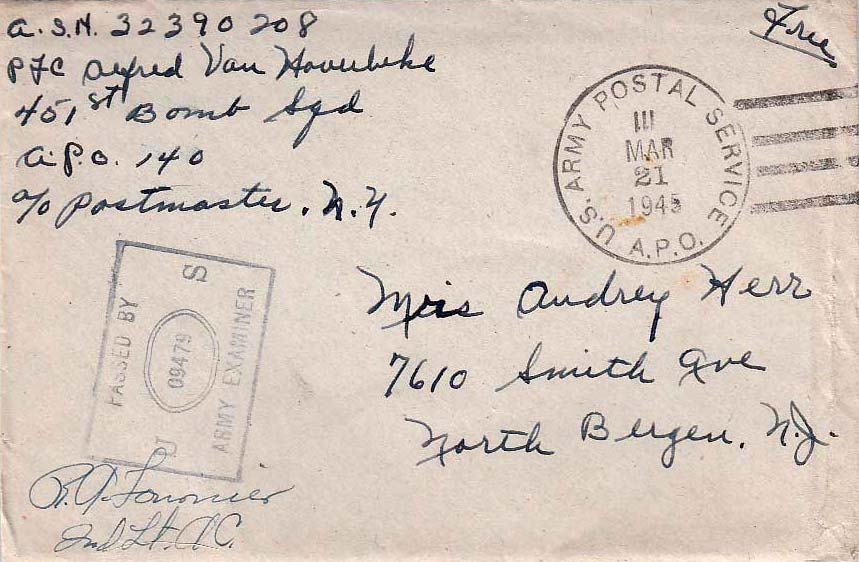 A.S.N. 32390208
Free
PFC Alfred Van Hoverbeke
451st Bomb Sqd
A.P.O. 140
c/o Postmaster, N.Y.
U.S. ARMY POSTAL SERVICE
III
MAR
21
1945
A.P.O.
Miss Audrey Herr
7610 Smith Ave
North Bergen, N.J.
PASSED BY
U S
09479
ARMY EXAMINER
2nd Lt. A.C.